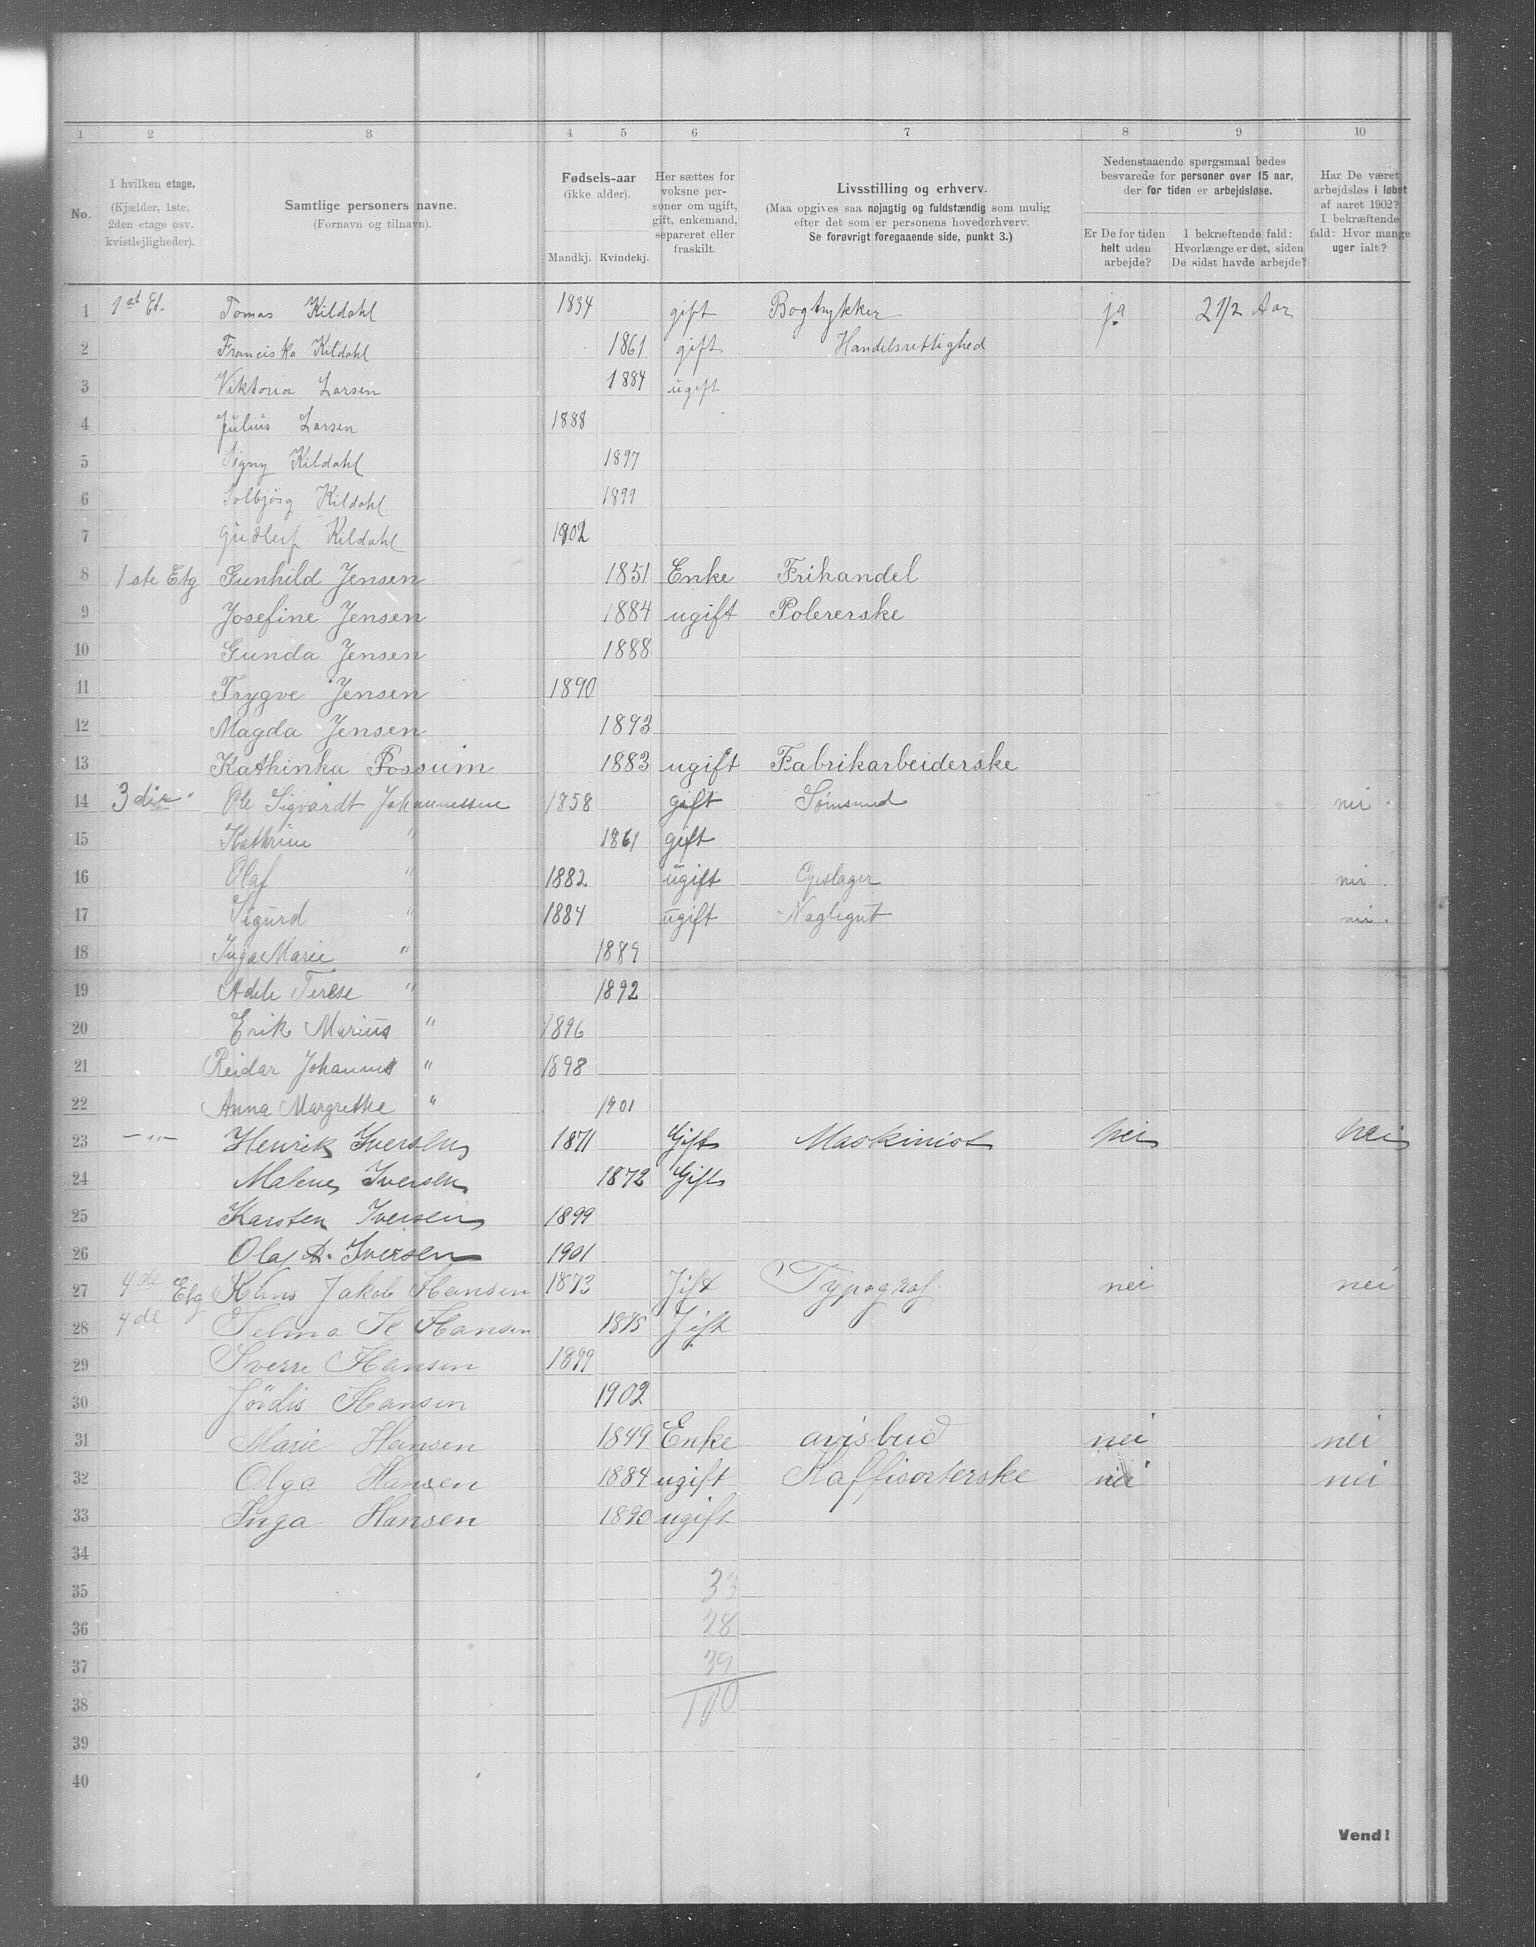 1 2 3 4 5 6 7 8 9 10
No.
I hvilken etage. (Kjælder, 1ste, 2den etage osv. kvistlejligheder).
Samtlige personers navne. (Fornavn og tilnavn).
Fødsels-aar (ikke alder).
Mandkj. Kvindekj.
Her sættes for voksne personer om ugift, gift, enkemand, separeret eller fraskilt.
Livsstilling og erhverv.
(Maa opgives saa nøjagtig og fuldstændig som mulig efter det som er personens hovederhverv.
Se forøvrigt foregaaende side, punkt 3.)
Nedenstaaende spørgsmaal bedes besvarede for personer over 15 aar, der for tiden er arbejdsløse.
Er De for tiden helt uden arbejde?
I bekræftende fald: Hvorlænge er det, siden De sidst havde arbejde?
Har De været arbejdsløs i løbet af aaret 1902? I bekræftende fald: Hvor mange uger ialt?
1 1st Et. Tomas Kildahl 1834 gift Bogtrykker ja 2 1/2 Aar
2 Franciska Kildahl 1861 gift Handelsrettighed
3 Viktoria Larsen 1884 ugift
4 Julius Larsen 1888
5 Signy Kildahl 1897
6 Solbjørg Kildahl 1899
7 Gudleif Kildahl 1902
8 1ste Etg Gunhild Jensen 1851 Enke Frihandel
9 Josefine Jensen 1884 ugift Polererske
10 Gunda Jensen 1888
11 Trygve Jensen 1890
12 Magda Jensen 1893
13 Kathinka Possum 1883 ugift Fabrikarbeiderske
14 3die " Ole Sigvardt Johannessen 1858 gift Sømsmed nei .
15 Kathrine " 1861 gift
16 Olaf " 1882 ugift nei .
17 Sigurd " 1884 ugift nei .
18 Inga Marie " 1889
19 Adele Terese " 1892
20 Erik Marius " 1896
21 Reidar Johannes " 1898
22 Anna Margrethe " 1901
23 — " — Henrik Iversen 1871 Gift Maskinist nei nei
24 Malene Iversen 1872 Gift
25 Karsten Iversen 1899
26 Olaf A. Iversen 1901
27 4de Etg Hans Jakob Hansen 1873 Gift Typograf nei nei
28 4de Selma K Hansen 1875 Gift
29 Sverre Hansen 1899
30 Jördis Hansen 1902
31 Marie Hansen 1849 Enke avisbud nei nei
32 Olga Hansen 1884 ugift Kaffisorterske nei nei
33 Inga Hansen 1890 ugift
34
35 33
36 28
37 39
38 100
39
40
Vend!